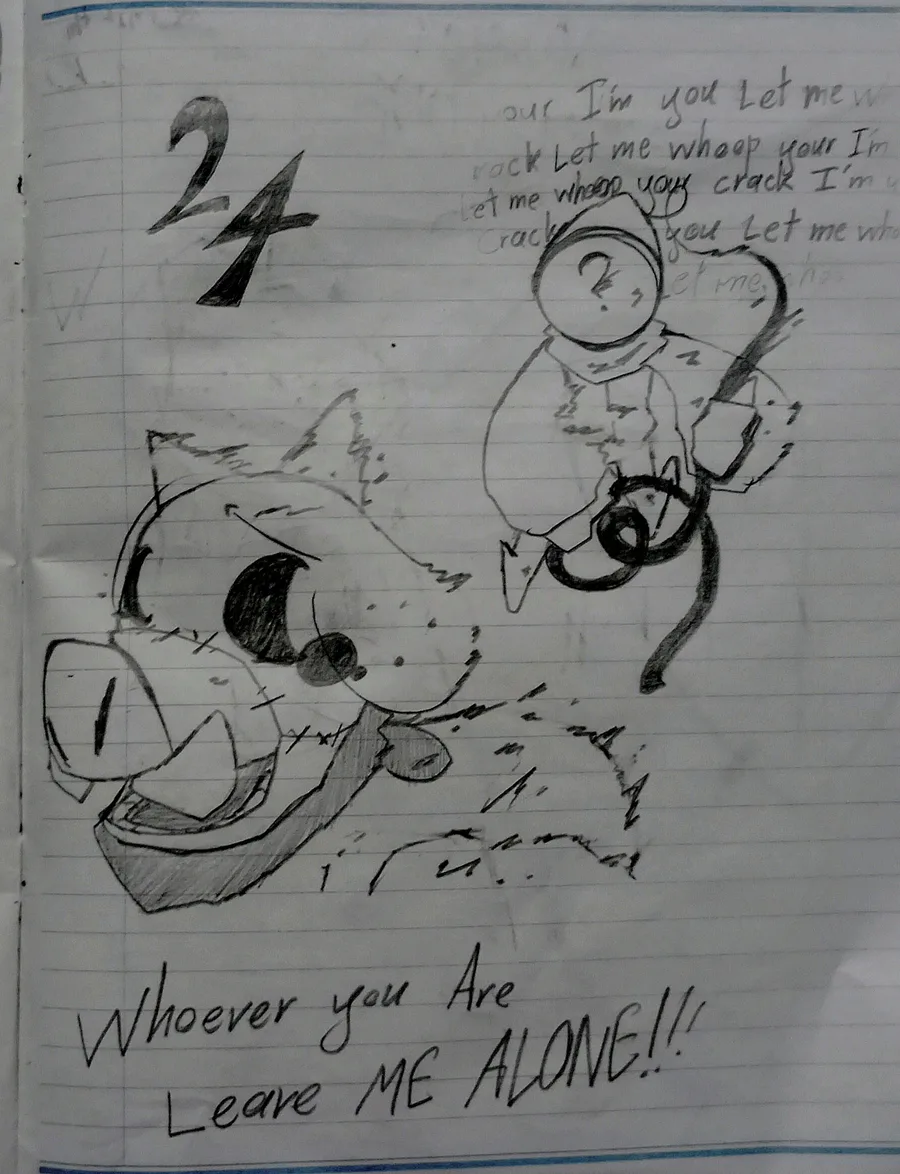 24
our I'm you Let me
rack Let me whoop your I'm
Let me whoop your crack I'm
Crack you Let me who
Let me
?
Whoever you Are
Leave ME ALONE!!!